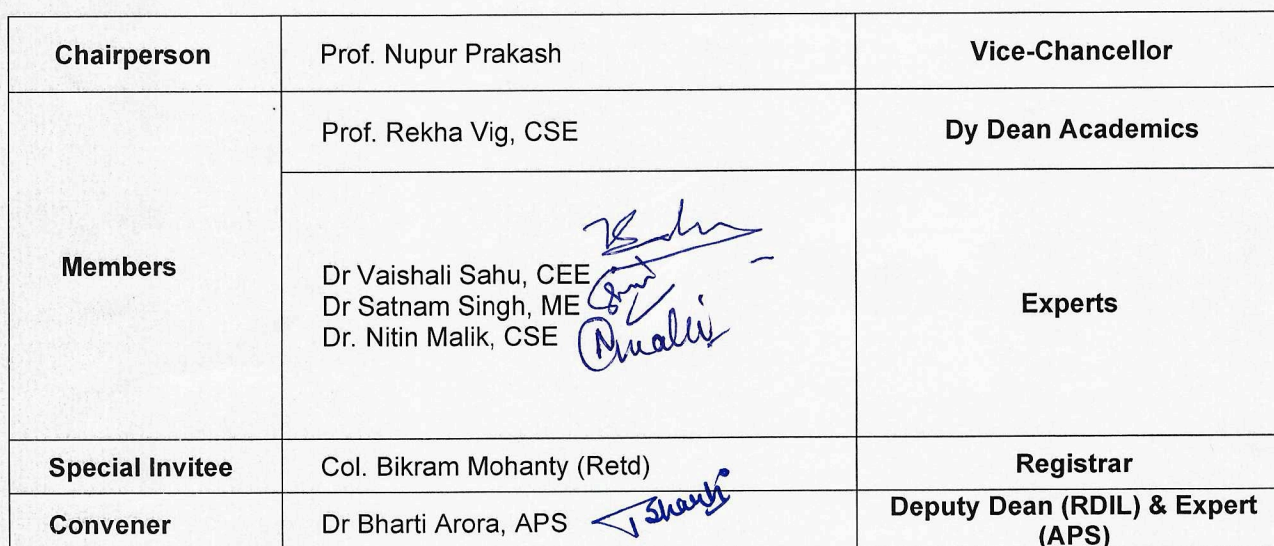 Chairperson Prof. Nupur Prakash Vice-Chancellor
Prof. Rekha Vig, CSE Dy Dean Academics
Members
Dr Vaishali Sahu, CEE
Dr Satnam Singh, ME
Dr. Nitin Malik, CSE Nmalik
Experts
Special Invitee Col. Bikram Mohanty (Retd) Registrar
Convener Dr Bharti Arora, APS Bharti Deputy Dean (RDIL) & Expert
(APS)